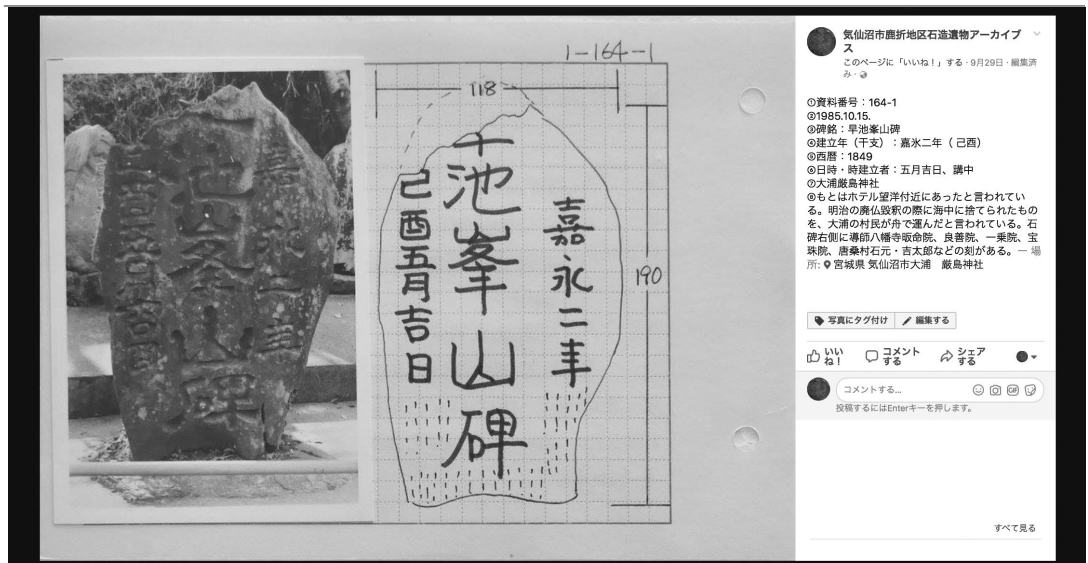 1-164-1
118
190
嘉永二年
十池峯山碑
己酉五月吉日
気仙沼市鹿折地区石造遺物アーカイブ
ス
このページに「いいね！」する · 9月29日 · 編集済
み ·
①資料番号：164-1
②1985.10.15.
③碑銘：早池峯山碑
④建立年（干支）：嘉氷二年（ 己酉）
⑤西暦：1849
⑥日時・時建立者：五月吉日、講中
⑦大浦厳島神社
⑧もとはホテル望洋付近にあったと言われてい
る。明治の廃仏毀釈の際に海中に捨てられたもの
を、大浦の村民が舟で運んだと言われている。石
碑右側に導師八幡寺皈命院、良善院、一乗院、宝
珠院、唐桑村石元・吉太郎などの刻がある。 — 場
所: 宮城県 気仙沼市大浦　厳島神社
写真にタグ付け
編集する
いい
ね！
コメント
する
シェア
する
コメントする...
GIF
投稿するにはEnterキーを押します。
すべて見る